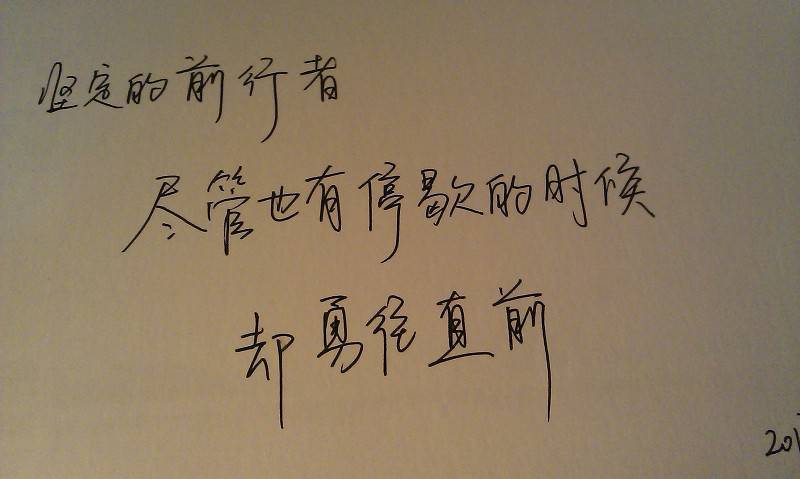 坚定的前行者
尽管也有停歇的时候
却勇往直前
201